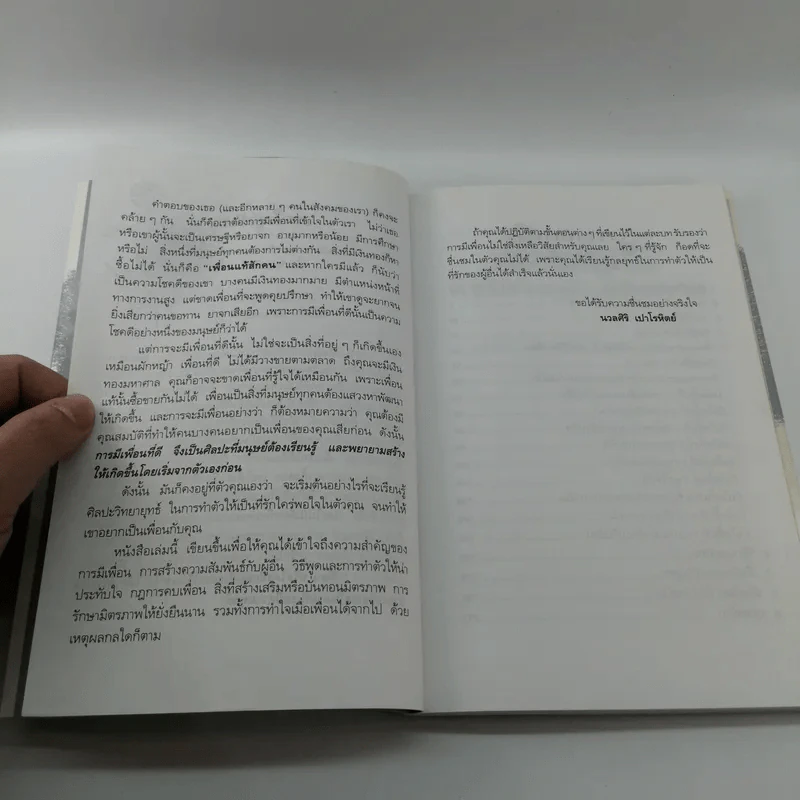 คำตอบของเธอ (และอีกหลาย ๆ คนในสังคมของเรา) ก็คงจะ
คล้าย ๆ กัน นั่นก็คือเราต้องการมีเพื่อนที่เข้าใจในตัวเรา ไม่ว่าเธอ
หรือเขาผู้นั้นจะเป็นเศรษฐีหรือยาจก อายุมากหรือน้อย มีการศึกษา
หรือไม่ สิ่งหนึ่งที่มนุษย์ทุกคนต้องการไม่ต่างกัน สิ่งที่มีเงินทองก็หา
ซื้อไม่ได้ นั่นก็คือ "เพื่อนแท้สักคน" และหากใครมีแล้ว ก็นับว่า
เป็นความโชคดีของเขา บางคนมีเงินทองมากมาย มีตำแหน่งหน้าที่
ทางการงานสูง แต่ขาดเพื่อนที่จะพูดคุยปรึกษา ทำให้เขาดูจะยากจน
ยิ่งเสียกว่าคนขอทาน ยาจกเสียอีก เพราะการมีเพื่อนที่ดีนั้นเป็นความ
โชคดีอย่างหนึ่งของมนุษย์ก็ว่าได้
แต่การจะมีเพื่อนที่ดีนั้น ไม่ใช่จะเป็นสิ่งที่อยู่ ๆ ก็เกิดขึ้นเอง
เหมือนผักหญ้า เพื่อนที่ดี ไม่ได้มีวางขายตามตลาด ถึงคุณจะมีเงิน
ทองมหาศาล คุณก็อาจจะขาดเพื่อนที่รู้ใจได้เหมือนกัน เพราะเพื่อน
แท้นั้นซื้อขายกันไม่ได้ เพื่อนเป็นสิ่งที่มนุษย์ทุกคนต้องแสวงหาพัฒนา
ให้เกิดขึ้น และการจะมีเพื่อนอย่างว่า ก็ต้องหมายความว่า คุณต้องมี
คุณสมบัติที่ทำให้คนบางคนอยากเป็นเพื่อนของคุณเสียก่อน ดังนั้น
การมีเพื่อนที่ดี จึงเป็นศิลปะที่มนุษย์ต้องเรียนรู้ และพยายามสร้าง
ให้เกิดขึ้นโดยเริ่มจากตัวเองก่อน
ดังนั้น มันก็คงอยู่ที่ตัวคุณเองว่า จะเริ่มต้นอย่างไรที่จะเรียนรู้
ศิลปะวิทยายุทธ์ ในการทำตัวให้เป็นที่รักใคร่พอใจในตัวคุณ จนทำให้
เขาอยากเป็นเพื่อนกับคุณ
หนังสือเล่มนี้ เขียนขึ้นเพื่อให้คุณได้เข้าใจถึงความสำคัญของ
การมีเพื่อน การสร้างความสัมพันธ์กับผู้อื่น วิธีพูดและการทำตัวให้น่า
ประทับใจ กฎการคบเพื่อน สิ่งที่สร้างเสริมหรือบั่นทอนมิตรภาพ การ
รักษามิตรภาพให้ยั่งยืนนาน รวมทั้งการทำใจเมื่อเพื่อนได้จากไป ด้วย
เหตุผลกลใดก็ตาม
ถ้าคุณได้ปฏิบัติตามขั้นตอนต่าง ๆ ที่เขียนไว้ในแต่ละบท รับรองว่า
การมีเพื่อนไม่ใช่สิ่งเหลือวิสัยสำหรับคุณเลย ใคร ๆ ที่รู้จัก ก็อดที่จะ
ชื่นชมในตัวคุณไม่ได้ เพราะคุณได้เรียนรู้กลยุทธ์ในการทำตัวให้เป็น
ที่รักของผู้อื่นได้สำเร็จแล้วนั่นเอง
ขอได้รับความชื่นชมอย่างจริงใจ
นวลศิริ เปาโรหิตย์